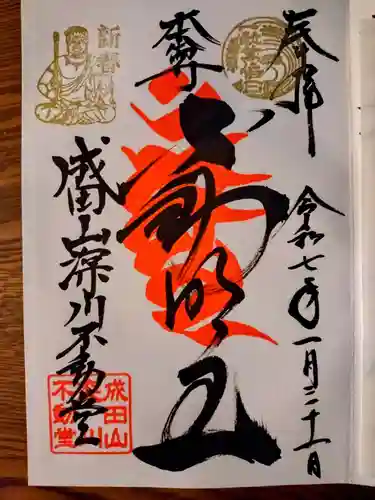 奉拝
令和七年一月三十一日
本尊
不動明王
成田山深川不動堂
新春
成田山
深川
不動堂